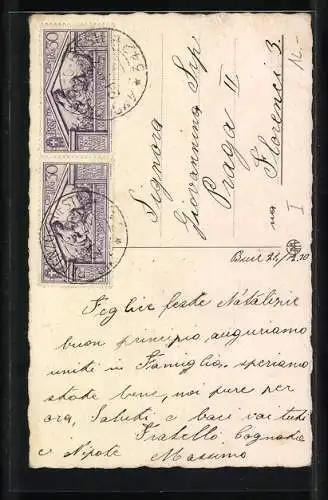 Signora
Giovannina Srp
Praga II
na Florenci 3
I
Buie 22/12.30
Feglice feste Natalizie
buon principio, auguriamo
uniti in Famiglia, speriamo
state bene, noi pure per
ora, Saluti e baci voi tutti
Fratello Cognata
e Nipote Massimo